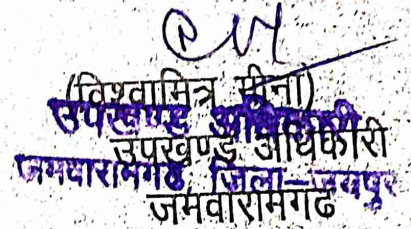 (विश्वामित्र मीना)
उपखण्ड अधिकारी
उपखण्ड अधिकारी
जमवारामगढ जिला-जयपुर
जमवारामगढ